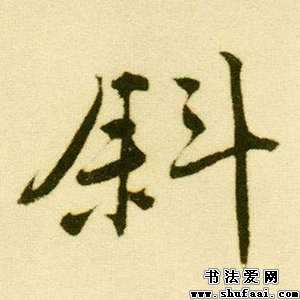 斜
书法爱网
www.shufaai.com